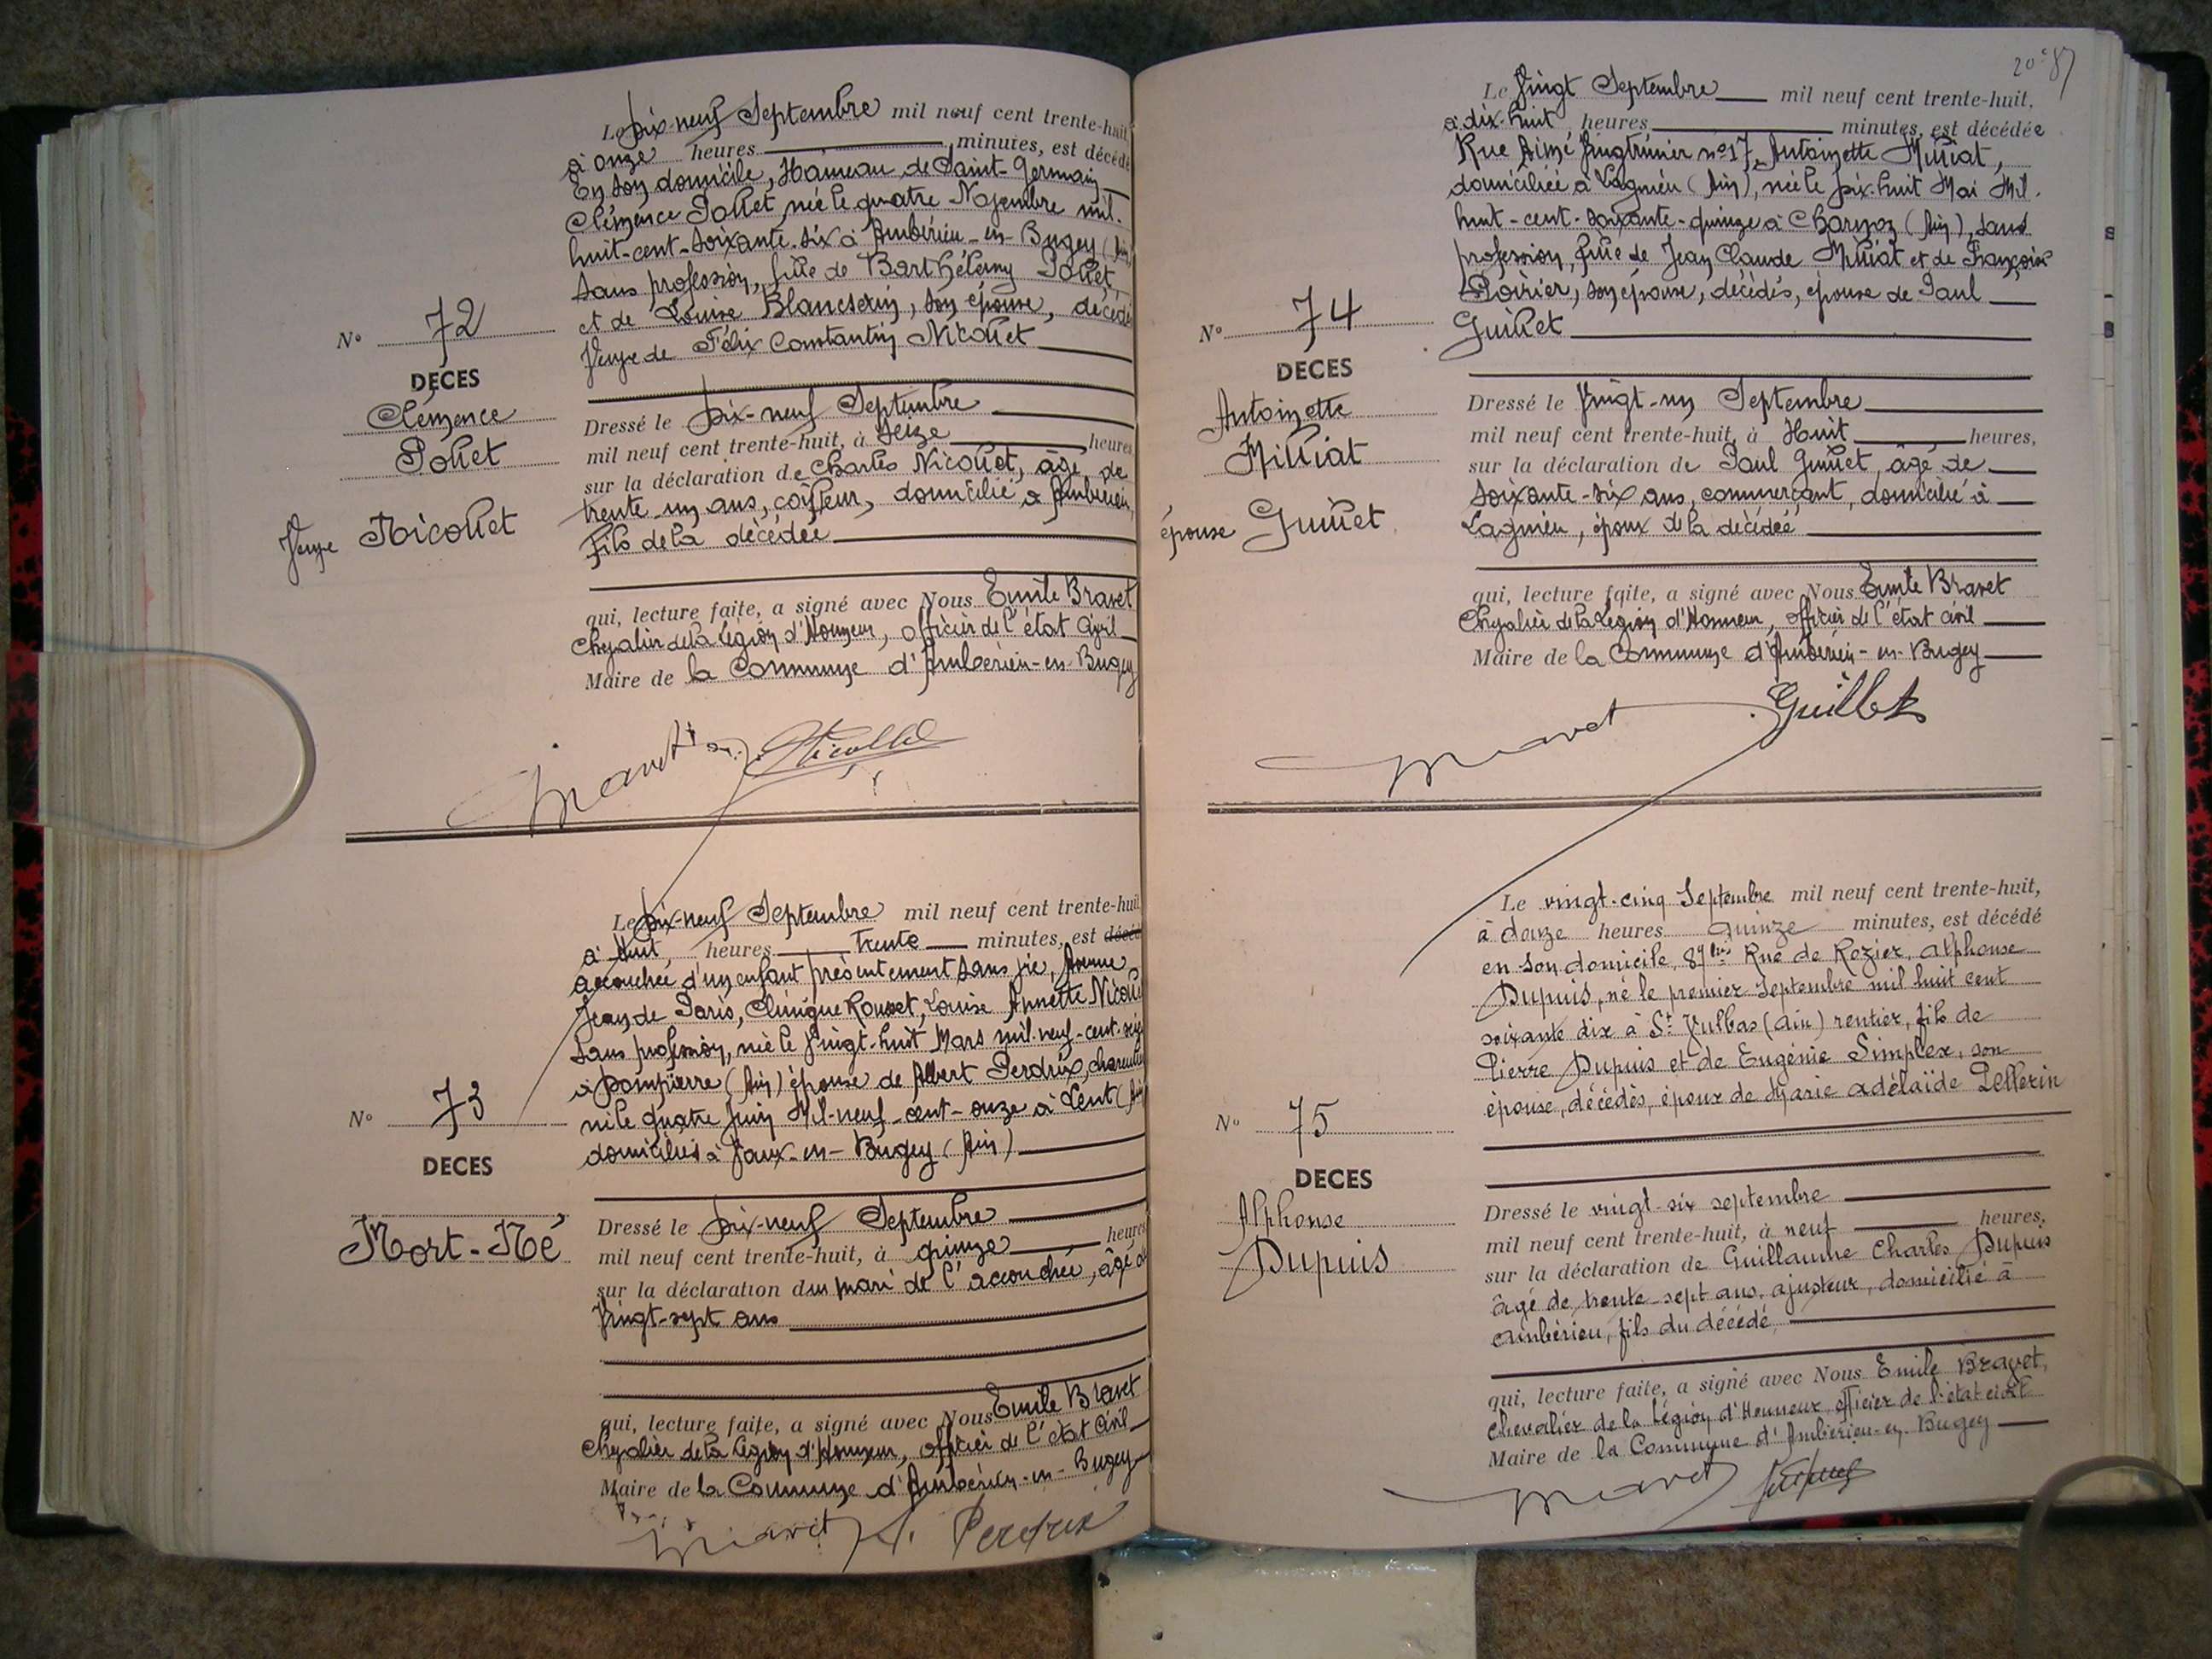 Le Dix-neuf Septembre mil neuf cent trente-huit
à onze heures minutes, est décédé
En son domicile, Hameau de Saint-Germain
Clémence Pollet, née le quatre Novembre mil-
huit-cent-soixante-six à Ambérieu-en-Bugey (Ain)
sans profession, fille de Barthélemy Pollet
et de Louise Blancserin, son épouse, décédé
Veuve de Félix Constantin Nicollet
N° 72
DECES
Clémence
Pollet
Veuve Nicollet
Dressé le Dix-neuf Septembre
mil neuf cent trente-huit, à Seize heures
sur la déclaration de Charles Nicollet, âgé de
trente-un ans, coiffeur, domicilié à Ambérieu,
fils de la décédée
qui, lecture faite, a signé avec Nous Emile Bravet
Chevalier de la Légion d'Honneur, officier de l'état Civil
Maire de la Commune d'Ambérieu-en-Bugey
Le Dix-neuf Septembre mil neuf cent trente-huit
à Huit heures trente minutes, est décéd
accouchée d'un enfant présentement sans vie, Avenue
Jean de Paris, Clinique Rousset, Louise Annette Nicoll
Sans profession, née le Vingt-huit Mars mil-neuf-cent-seize
à Dompierre (Ain) épouse de Albert Perdrix, charcutier
né le quatre Juin Mil-neuf-cent-onze à Lent (Ain
domiciliés à Vaux-en-Bugey (Ain)
N° 73
DECES
Mort-Né
Dressé le Dix-neuf Septembre
mil neuf cent trente-huit, à quinze heures
sur la déclaration du mari de l'accouchée, âgé de
Vingt-sept ans
qui, lecture faite, a signé avec Nous Emile Bravet
Chevalier de la Légion d'Honneur, officier de l'état Civil
Maire de la Commune d'Ambérieu-en-Bugey
Perdrix
87
Le Vingt Septembre mil neuf cent trente-huit,
à dix-huit heures minutes, est décédée
Rue Aimé Vingtrinier n° 17, Antoinette Milliat,
domiciliée à Lagnieu (Ain), née le Dix-huit Mai Mil-
huit-cent-soixante-quinze à Charnoz (Ain), sans
profession, fille de Jean Claude Milliat et de Françoise
Poirier, son épouse, décédés, épouse de Paul
Guillet
N° 74
DECES
Antoinette
Milliat
épouse Guillet
Dressé le Vingt-un Septembre
mil neuf cent trente-huit, à Huit heures,
sur la déclaration de Paul Guillet, âgé de
soixante-six ans, commerçant, domicilié à
Lagnieu, époux de la décédée
qui, lecture faite, a signé avec Nous Emile Bravet
Chevalier de la Légion d'Honneur, officier de l'état Civil
Maire de la Commune d'Ambérieu-en-Bugey
Guillet
Le vingt-cinq Septembre mil neuf cent trente-huit,
à douze heures quinze minutes, est décédé
en son domicile, 87 bis Rue de Rozier, Alphonse
Dupuis, né le premier Septembre mil huit cent
soixante dix à St Vulbas (Ain) rentier, fils de
Pierre Dupuis et de Eugénie Simplex, son
épouse, décédés, époux de Marie Adélaïde Pellerin
N° 75
DECES
Alphonse
Dupuis
Dressé le vingt-six septembre
mil neuf cent trente-huit, à neuf heures,
sur la déclaration de Guillaume Charles Dupuis
âgé de trente-sept ans, ajusteur, domicilié à
Ambérieu, fils du décédé
qui, lecture faite, a signé avec Nous Emile Bravet,
Chevalier de la Légion d'Honneur, officier de l'état civil
Maire de la Commune d'Ambérieu-en-Bugey